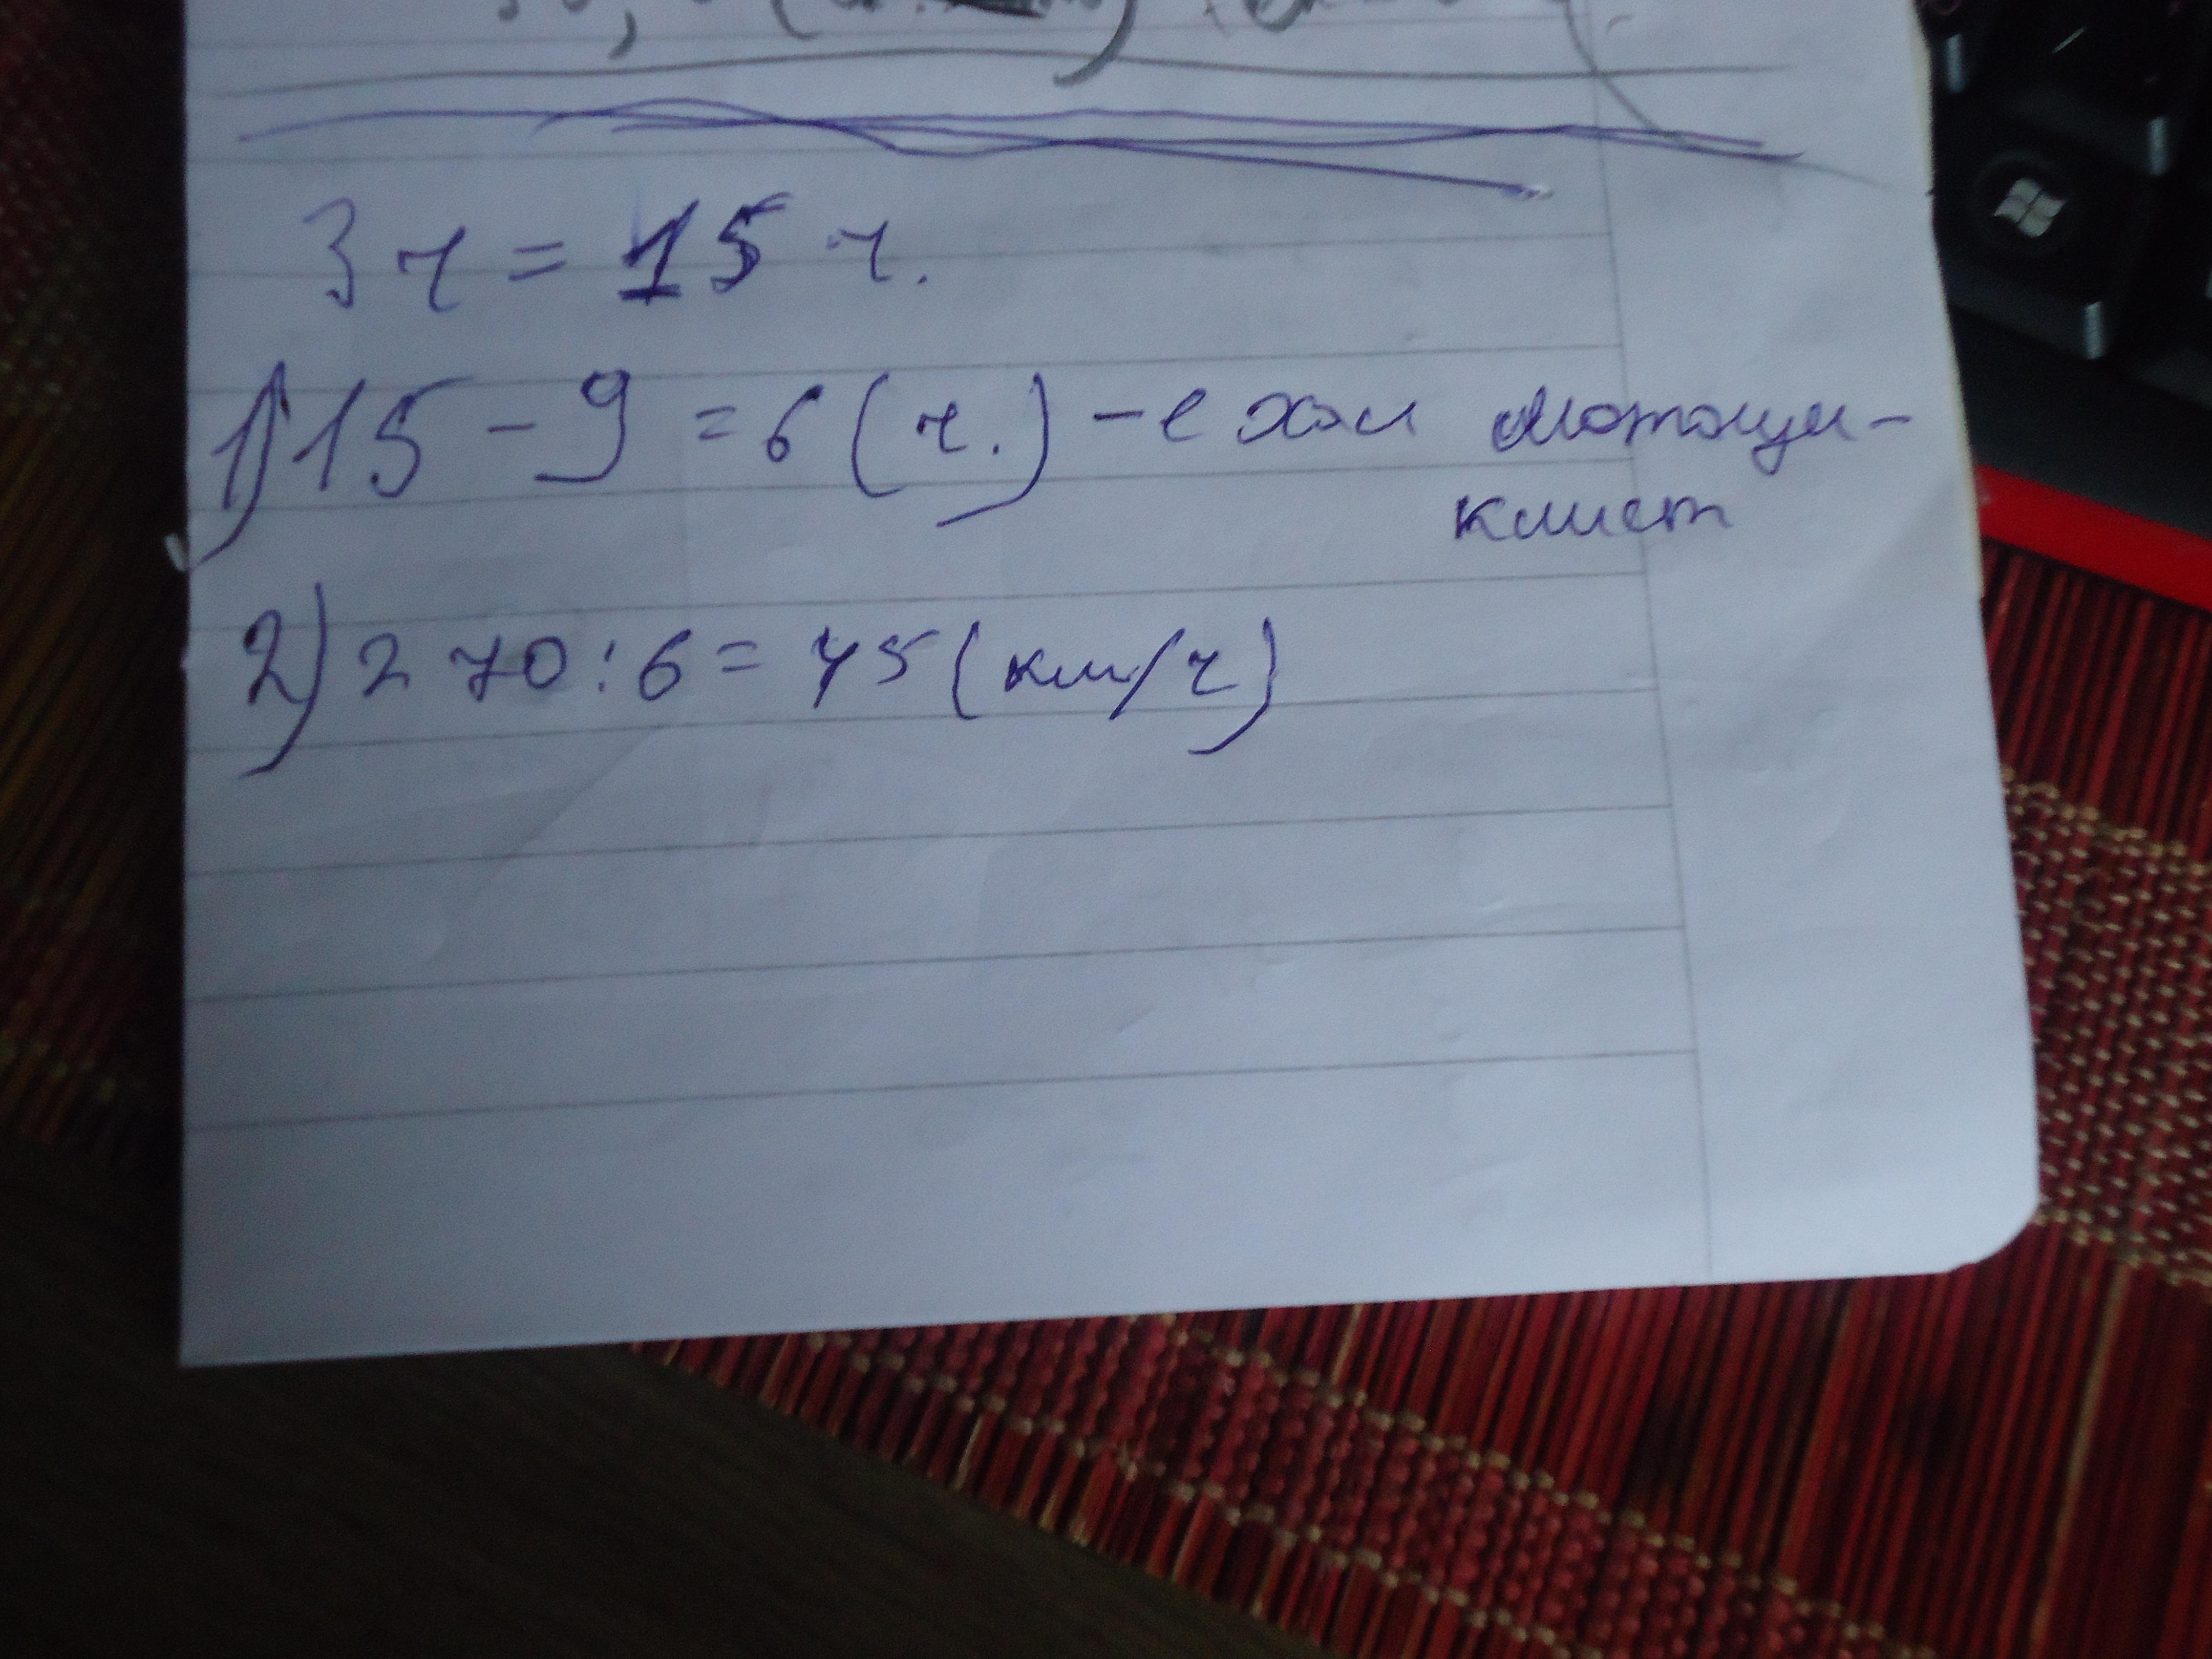 3 ч = 15 ч.
1) 15 - 9 = 6 (ч.) - ехал мотоци-
клист
2) 270 : 6 = 45 (км/ч)